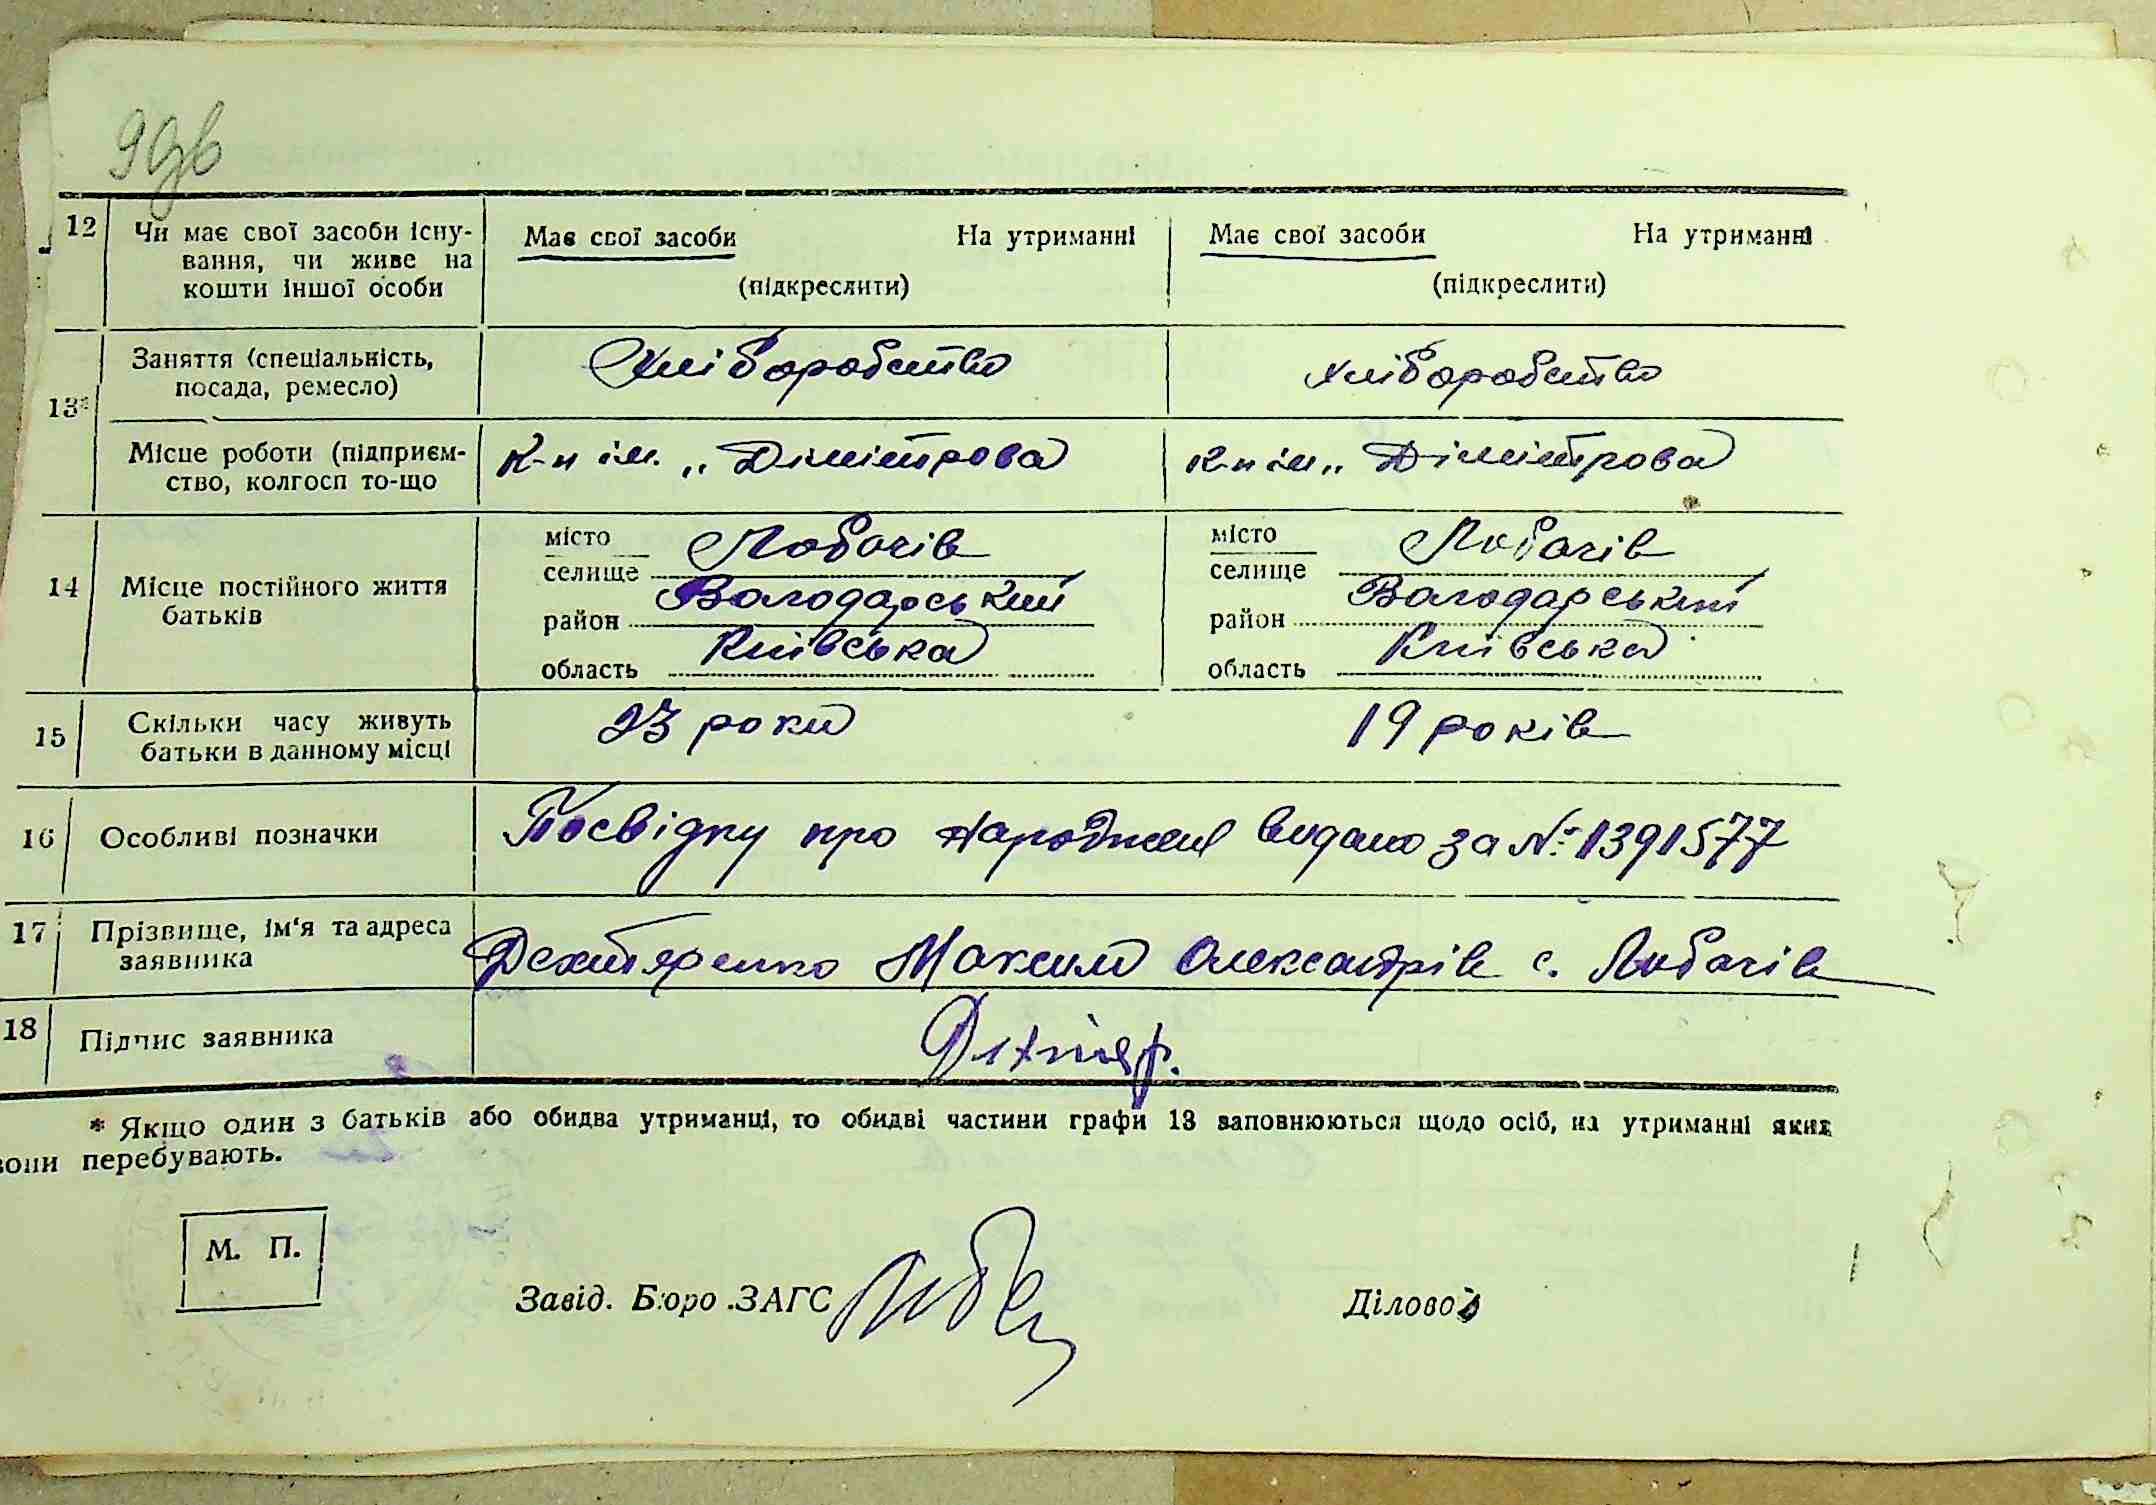 9 зв
12 Чи має свої засоби існу- Має свої засоби На утриманні Має свої засоби На утриманні
вання, чи живе на
кошти іншої особи (підкреслити) (підкреслити)
Заняття (спеціальність, Хліборобство хліборобство
посада, ремесло)
13*
Місце роботи (підприєм- К-п ім. „Дімітрова к-п ім „Дімітрова
ство, колгосп то-що
місто Лобачів місто Лобачів
селище селище
14 Місце постійного життя Володарський Володарський
батьків район район
Київська Київська
область область
15 Скільки часу живуть 23 роки 19 років
батьки в данному місці
16 Особливі позначки Посвідку про народження видано за №: 1391577
17 Прізвище, ім'я та адреса
заявника Дехтяренко Максим Олександрів с. Лобачів
18 Підпис заявника Дехтяр.
* Якщо один з батьків або обидва утриманці, то обидві частини графи 13 заповнюються щодо осіб, на утриманні яких
вони перебувають.
М. П.
Завід. Бюро ЗАГС Діловод